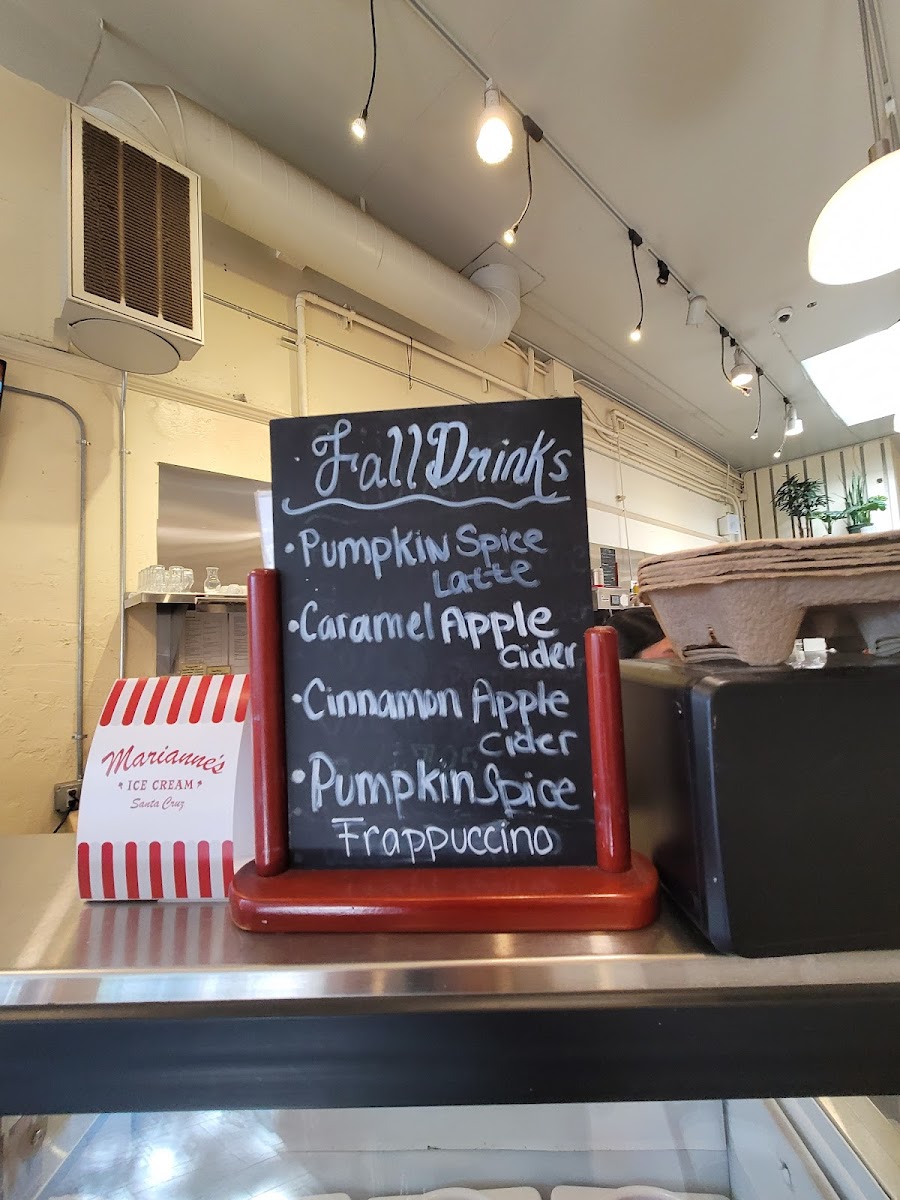 Fall Drinks
• Pumpkin Spice
Latte
• Caramel Apple
Cider
• Cinnamon Apple
Cider
• Pumpkin Spice
Frappuccino
Marianne's
* ICE CREAM *
Santa Cruz